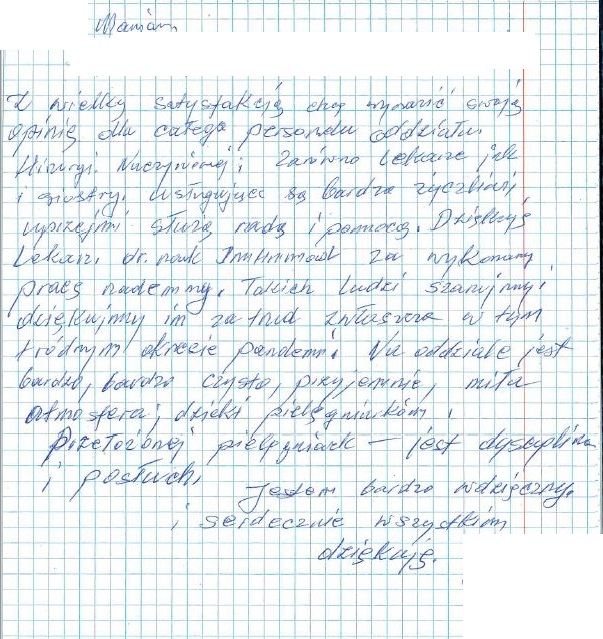 Marian
Z wielką satysfakcją chcę wyrazić swoją
opinię dla całego personelu oddziału
Hirurgi. Naczyniowej; Zarówno Lekarze jak
i siostry. usługujące są bardzo życzliwi,
uprzejmi służą radą i pomocą. Dziękuję
Lekarzi, dr. nauk za wykonaną
pracę nademny. Takich Ludzi szanujmy i
dziękujmy im za trud zwłaszcza w tym
tródnym okresie pandemi. Na oddziale jest
bardzo, bardzo czysto, przyjemnie, miła
atmosfera; dzięki pielęgniarkom i
Przełożonej pielęgniarek – jest dyscyplina
i posłuch.
Jestem bardzo wdzięczny.
i serdecznie wszystkim
dziękuję.